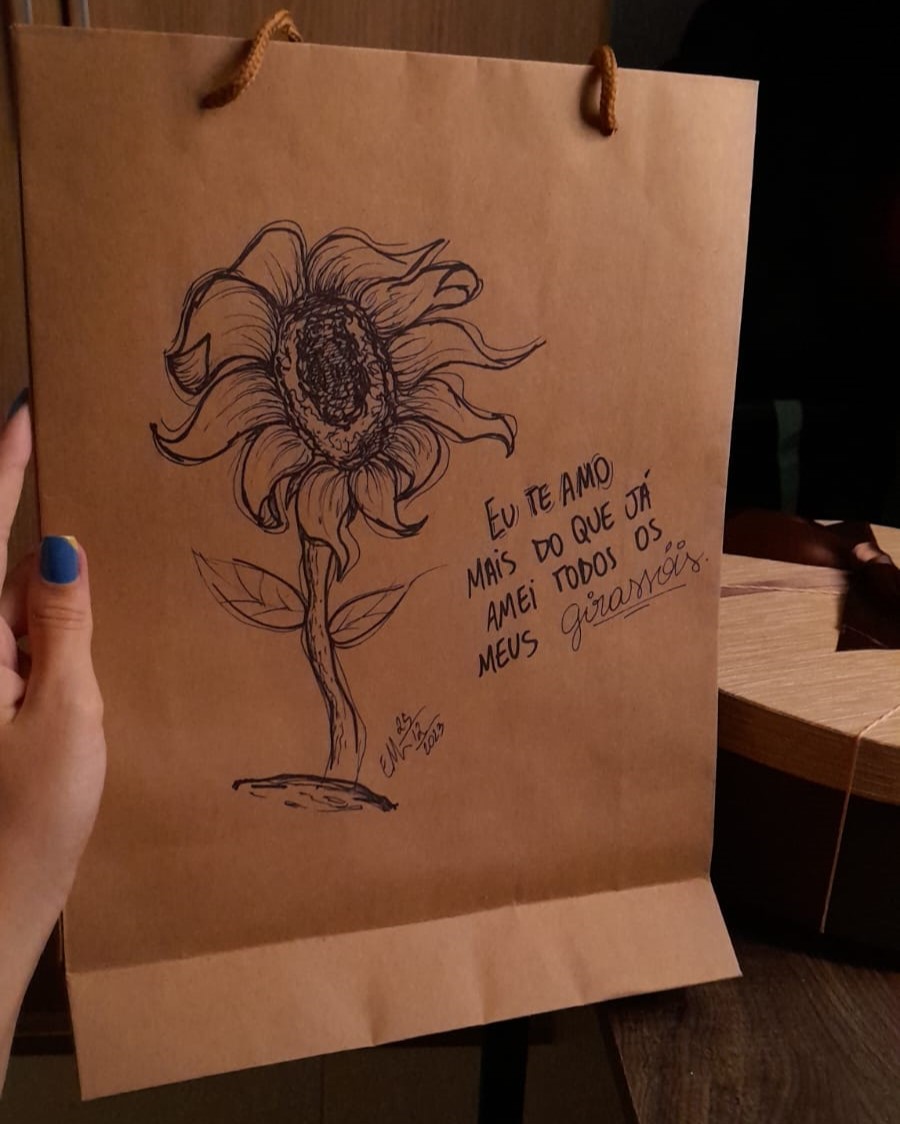 EU TE AMO
MAIS DO QUE JÁ
AMEI TODOS OS
MEUS girassóis.
23
12
2023